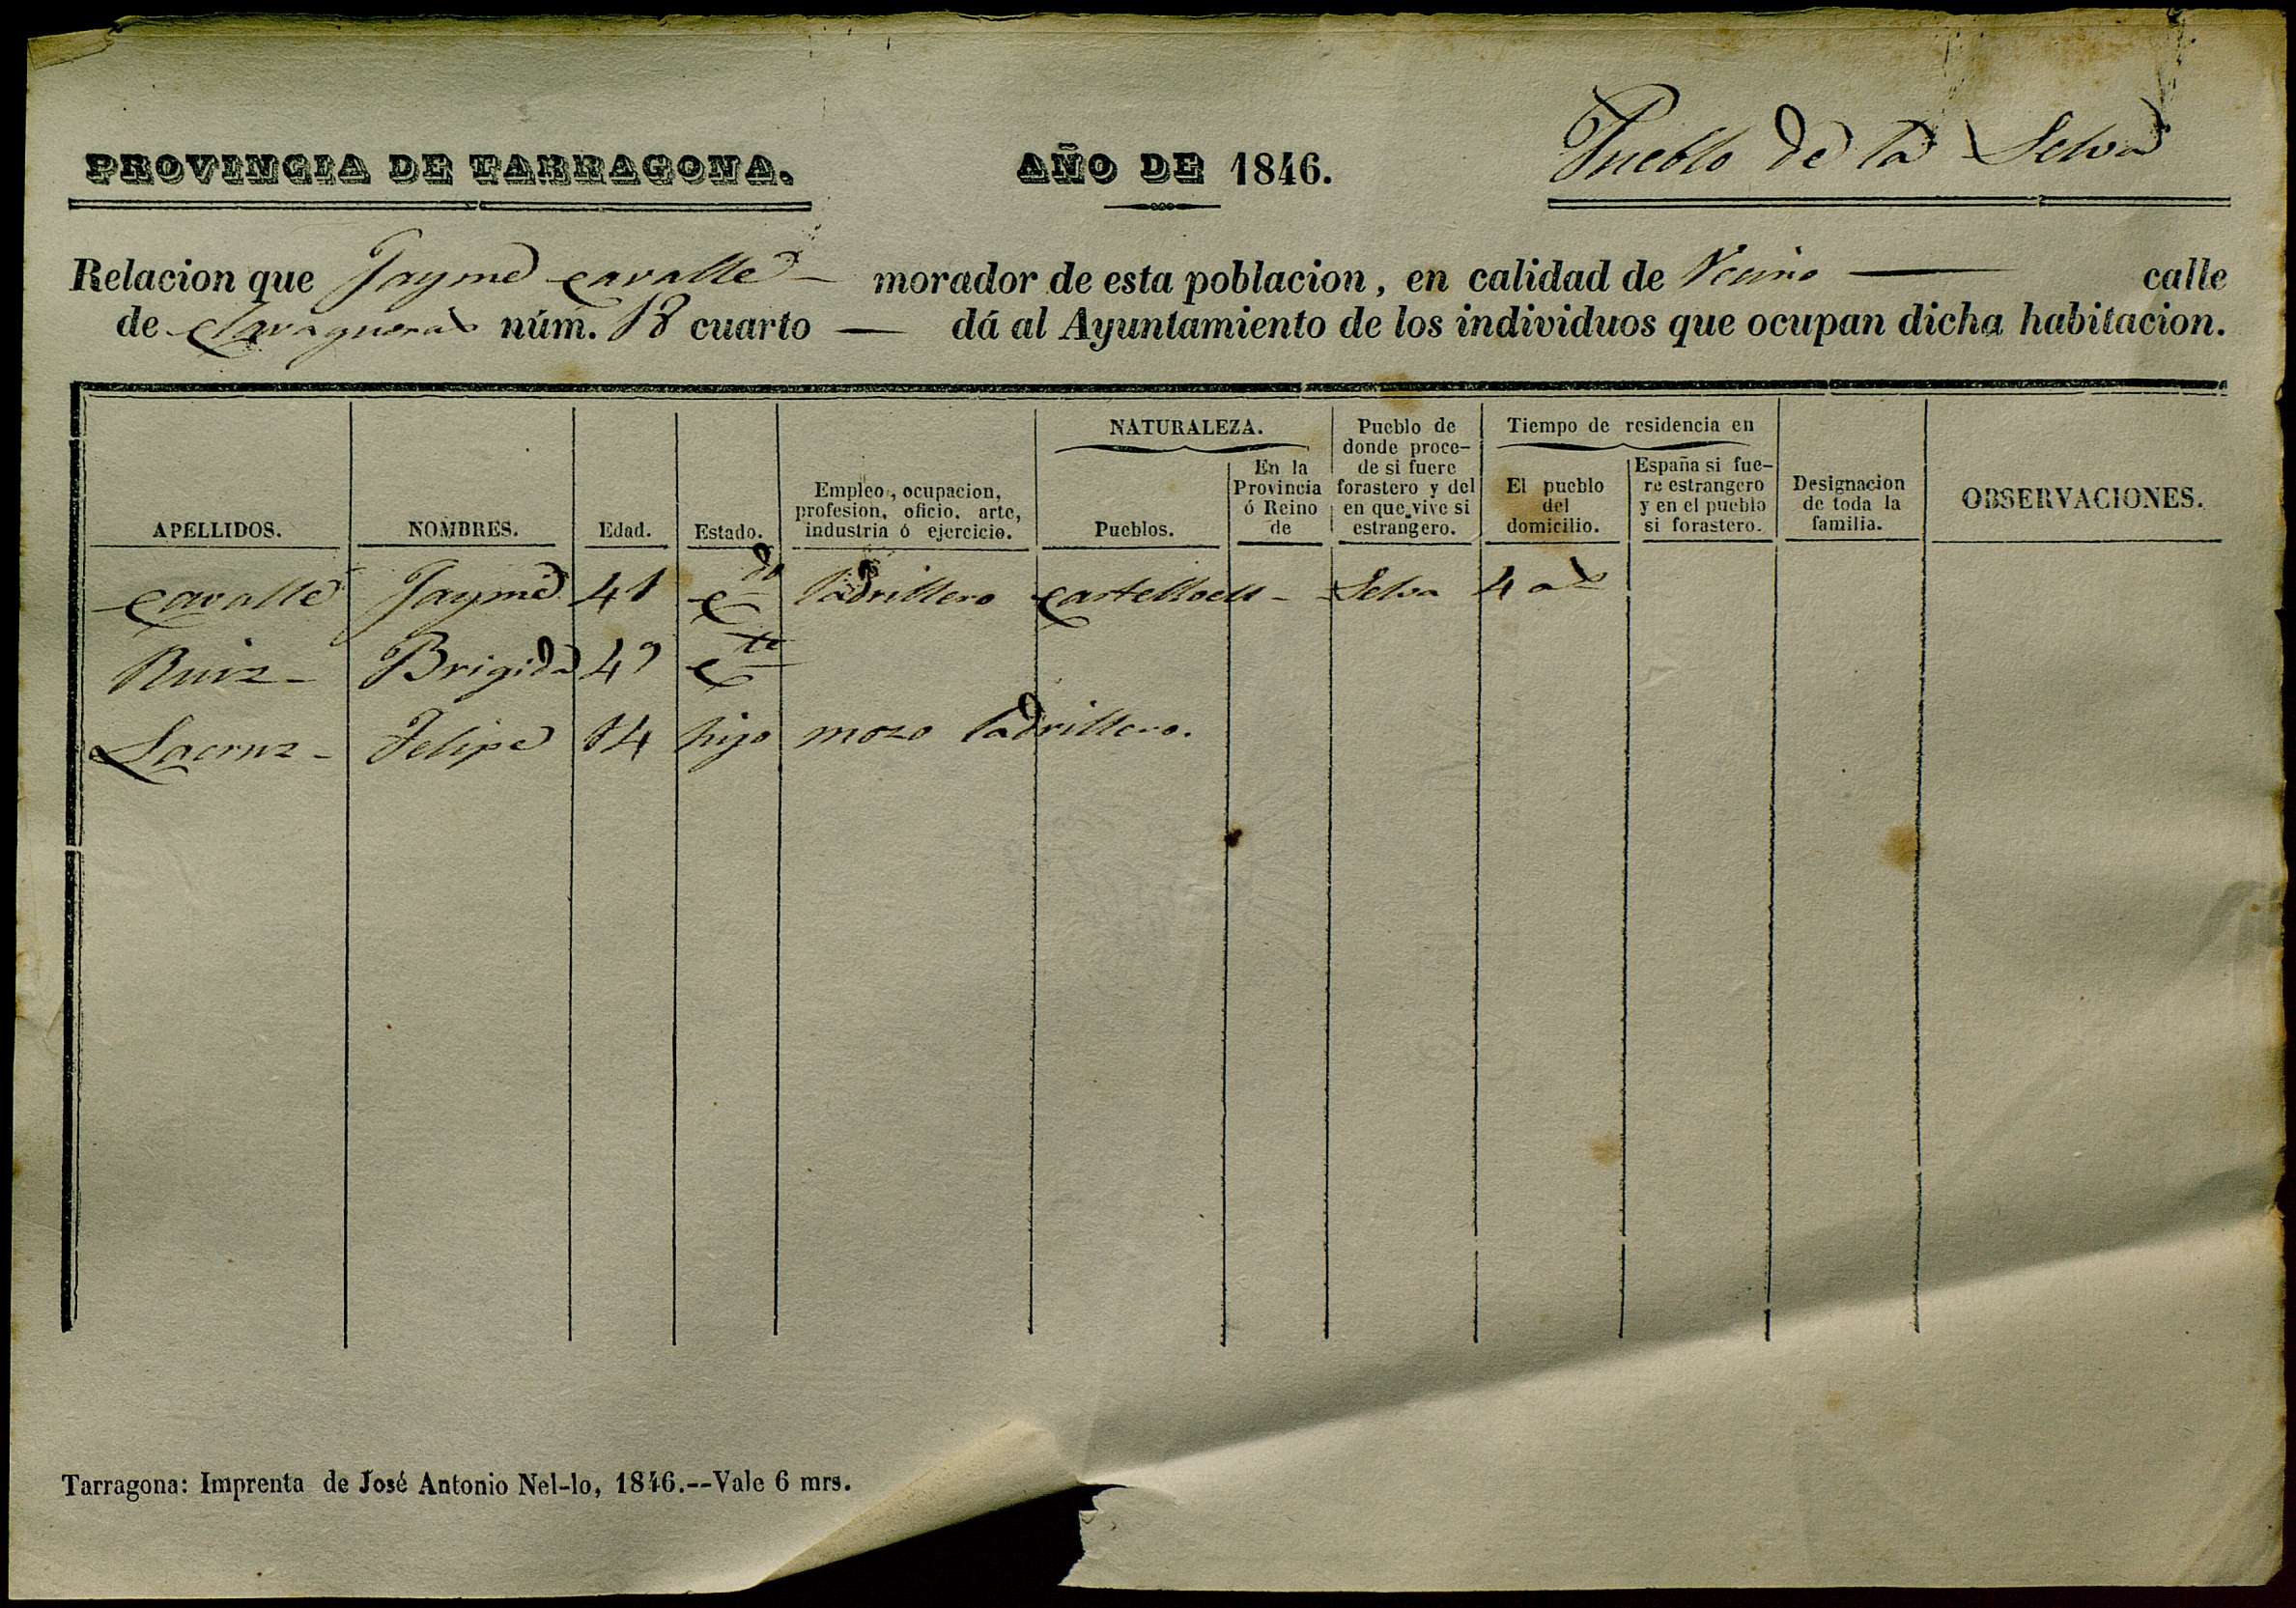 PROVINCIA DE TARRAGONA. AÑO DE 1846. Pueblo de la Selva
Relacion que Jayme Cavalle morador de esta poblacion, en calidad de Vecino — calle
de Claragueras núm. 18 cuarto — dá al Ayuntamiento de los individuos que ocupan dicha habitacion.
NATURALEZA.
Tiempo de residencia en
APELLIDOS.
NOMBRES.
Edad.
Estado.
Empleo, ocupacion,
profesion, oficio, arte,
industria ó ejercicio.
Pueblos.
En la
Provincia
ó Reino
de
Pueblo de
donde proce-
de si fuere
forastero y del
en que vive si
estrangero.
El pueblo
del
domicilio.
España si fue-
re estrangero
y en el pueblo
si forastero.
Designacion
de toda la
familia.
OBSERVACIONES.
Cavalle Jayme 41 Cdo ladrillero Castelloell - Selva 4 as
Ruiz - Brigida 49 Cta
Lacruz - Felipe 14 hijo mozo ladrillero.
Tarragona: Imprenta de José Antonio Nel-lo, 1846.--Vale 6 mrs.